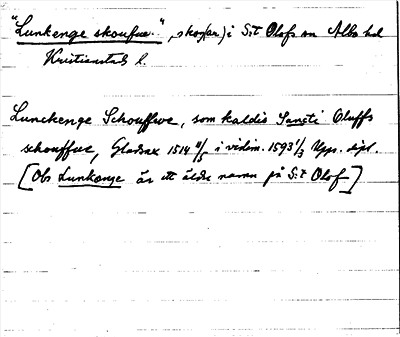 "Lunkenge skoufue", skog(ar) i S:t Olofs sn Albo hd
Kristianstads l.
Lunckenge Schouffwe, som kaldis Sancti Oluffs
schouffue, Gladsax 1514 11/5 i vidim. 1593 1/3 Upps. dipl.
[Obs Lunkenge är ett äldre namn på S:t Olof]